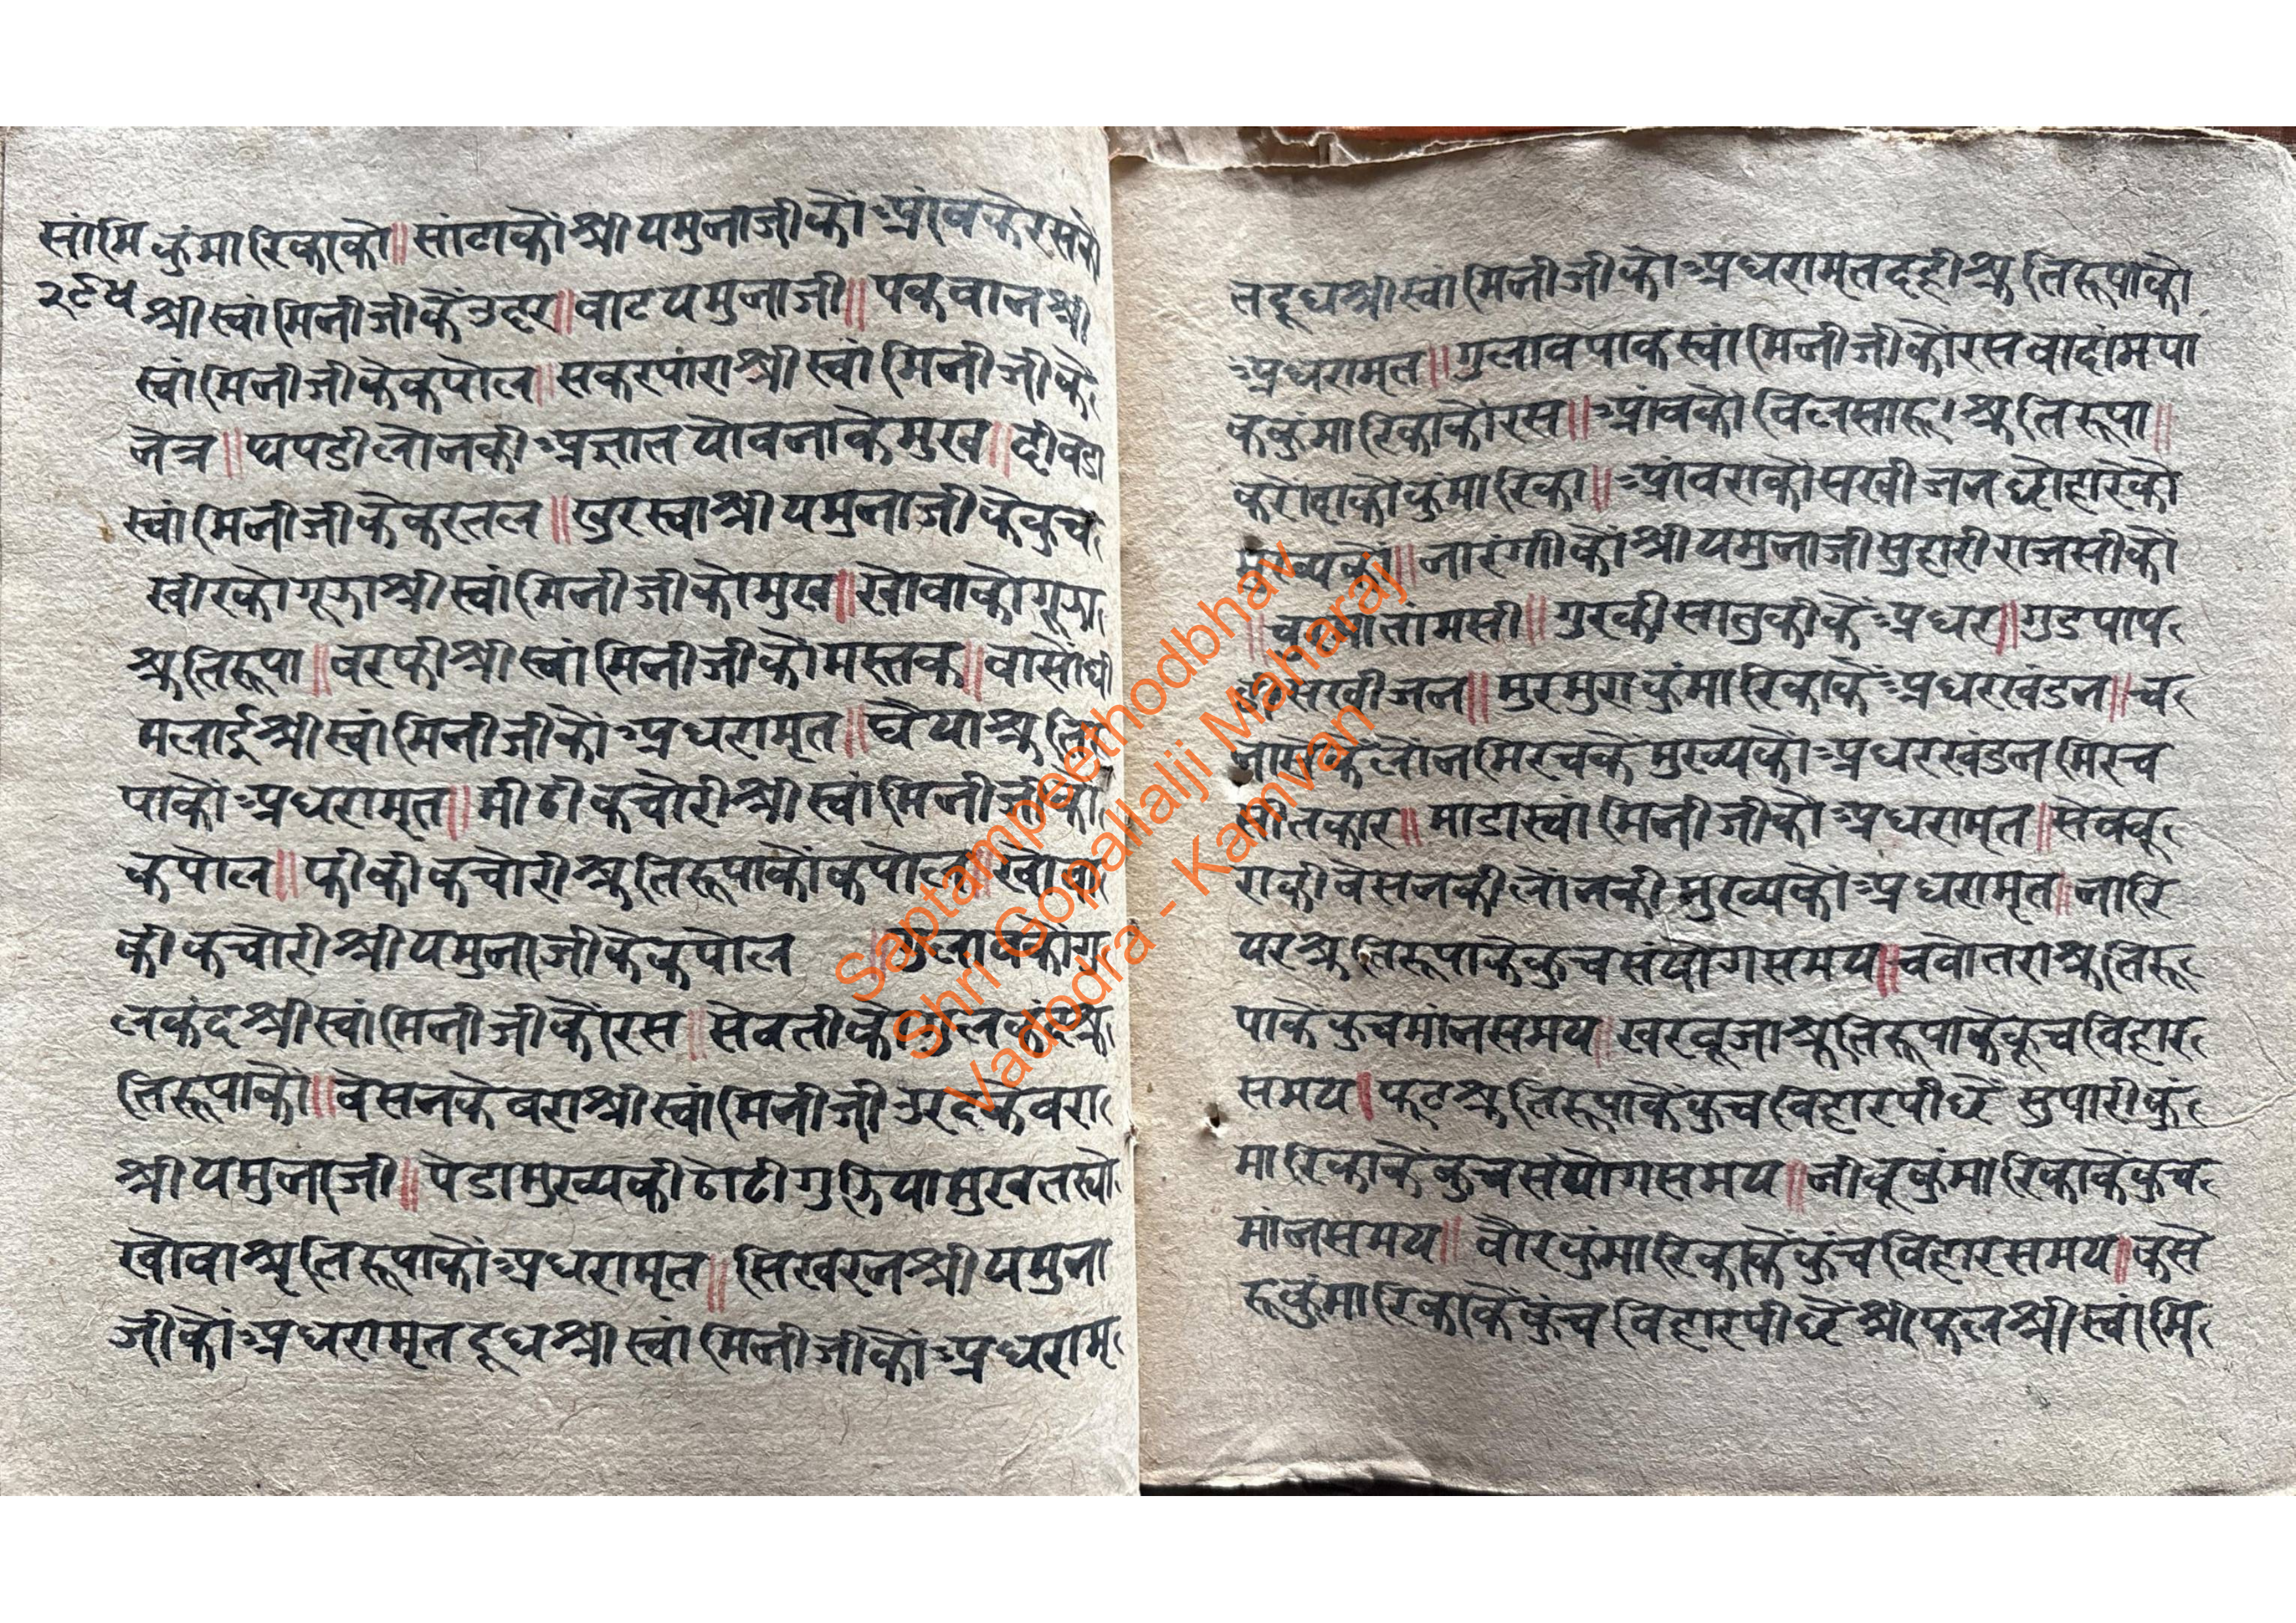 सांमि कुंमारिकाकौ॥ सांठाकौ श्री यमुनाजीकौ आंवकेरसकौ
२९५ श्रीस्वांमिनीजीकें उदर॥ वाट यमुनाजी॥ पकवान श्री
स्वांमिनीजीके कपोल॥ सकरपारा श्रीस्वांमिनीजीके
नेत्र॥ पपडी लोनकी अज्ञात यौवनाके मुख॥ दीवडा
स्वांमिनीजीके करतल॥ घुरस्वा श्रीयमुनाजीके कुच
खीरको गूझा श्रीस्वांमिनीजीको मुख॥ खोवाको गूझा
श्रुतिरूपा॥ वरफी श्रीस्वांमिनीजीकौ मस्तक॥ वासोंधी
मलाई श्रीस्वांमिनीजीकौ अधरामृत॥ घैया श्रुतिरू
पाकौ अधरामृत॥ मीठी कचोरी श्रीस्वांमिनीजीकौ
कपोल॥ फीकी कचोरी श्रुतिरूपाकौ कपोल॥ खोवा
की कचोरी श्रीयमुनाजीके कपोल ॥ गुलावकोगु
लकंद श्रीस्वांमिनीजीकौ रस॥ सेवतीको गुलकंद श्रु
तिरूपाकौ॥ वेसनके वरा श्रीस्वांमिनीजी उरदके वरा
श्रीयमुनाजी॥ पेडा मुख्यकी ठोठी गुझिया मुख
खोवा श्रुतिरूपाकौ अधरामृत॥ सिखरन श्रीयमुना
जीकौ अधरामृत दूध श्रीस्वांमिनीजीकौ अधरामृ
त दूध श्रीस्वांमिनीजीकौ अधरामृत दही श्रुतिरूपाकौ
अधरामृत॥ गुलावपाक स्वांमिनीजीकौ रस वादांमपा
क कुंमारिकाकौ रस॥ आंवकौ विलसारू। श्रुतिरूपा॥
करोदाकौ कुंमारिका॥ आंवराकौ सखीजन छोहारेको
मुख्यकौ॥ नारंगीकौ श्रीयमुनाजी मुहारी राजसीकौ
॥ तांमसी॥ गुरकी सातुकीके अधर॥ गुडपाप
डी सखीजन॥ मुरमुरा कुंमारिकाके अधरखंडन॥ च
नाभुके लोंनमिरचके मुख्यकौ अधरखंडन मिरच
सीतकार॥ माडा स्वांमिनीजीकौ अधरामृत॥ सेव वू
राकी वेसनकी लोंनकी मुख्यकौ अधरामृत॥ नारि
यर श्रुतिरूपाके कुच संयोगसमय॥ चवोतरा श्रुतिरू
पाके कुच मांनसमय॥ खरवूजा श्रुतिरूपाके कूच विहार
समय॥ फूट श्रुतिरूपाके कुच विहारपीछें सुपारी कुं
मारिकाके कुच संयोगसमय॥ नीवू कुंमारिकाके कुच
मांनसमय॥ वौर कुंमारिकाके कुंच विहारसमय॥ कसे
रू कुंमारिकाके कुंच विहारपीछें श्रीफल श्रीस्वांमि
Saptampeethodbhav
Shri Gopallalji Maharaj
Vadodra - Kamvan